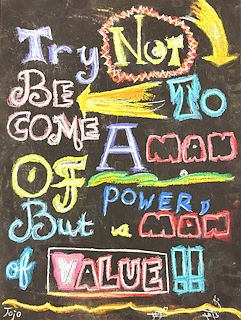 Try NOT
BE TO
COME A MAN
OF POWER,
But a MAN
of VALUE!!
Jojo